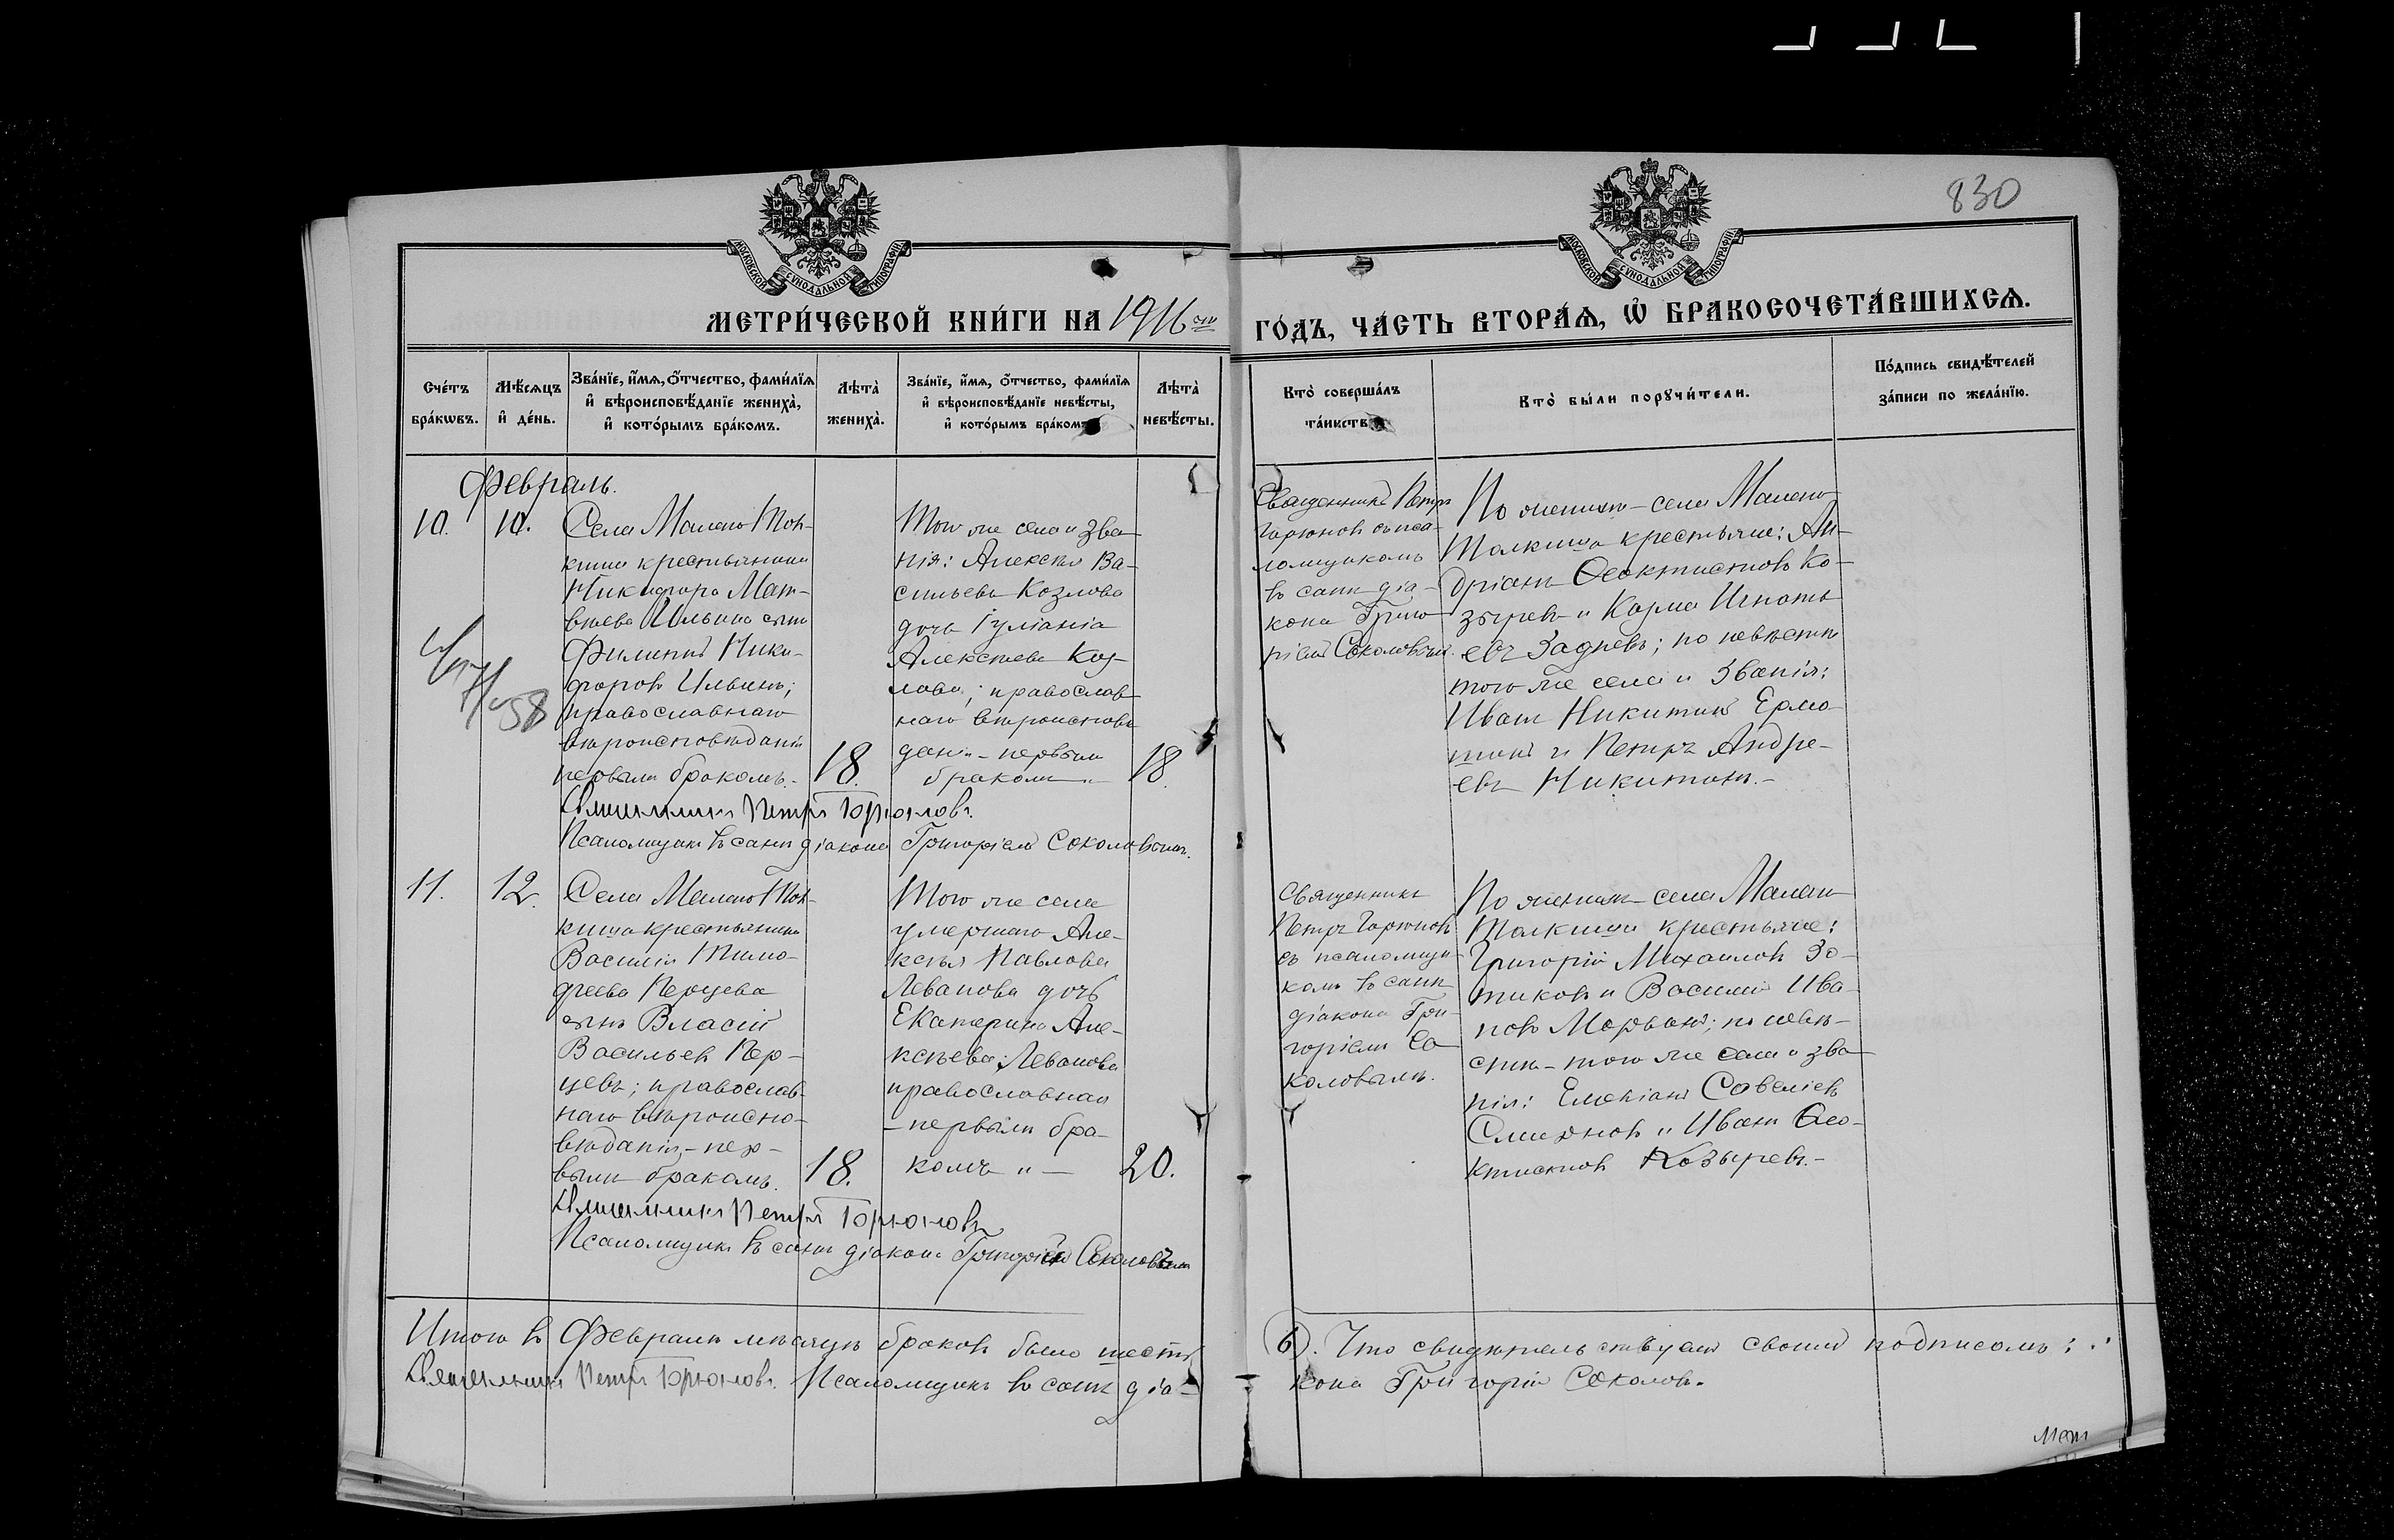 830
МОСКОВСКОЙ СУНОДАЛЬНОЙ ТИПОГРАФІИ
МОСКОВСКОЙ СУНОДАЛЬНОЙ ТИПОГРАФІИ
МЕТРИ́ЧЕСКОЙ КНИ́ГИ НА 1916ый
ГО́ДЪ, ЧА́СТЬ ВТОРА́Ѧ, Ѽ БРАКОСОЧЕТА́ВШИХСѦ.
Сче́тъ бра́кѡвъ.
Мѣ́сяцъ и҆ де́нь.
Зва́нїе, и҆́мѧ, о҆́тчество, фами́лїѧ и҆ вѣроисповѣ́данїе жениха̀, и҆ кото́рымъ бра́комъ.
Лѣта̀ жениха̀.
Зва́нїе, и҆́мѧ, о҆́тчество, фами́лїѧ и҆ вѣроисповѣ́данїе невѣ́сты, и҆ кото́рымъ бра́комъ
Лѣта̀ невѣ́сты.
Кто̀ соверша́лъ та́инство
Кто̀ бы́ли порꙋчи́тели.
По́дпись свидѣ́телей за́писи по жела́нїю.
Февраль.
10.
10.
Села Малаго Тол-
киша крестьянина
Никифора Мат-
вѣева Ильина сынъ
Филиппъ Ники-
форовъ Ильинъ;
православнаго
вѣроисповѣданія
первымъ бракомъ.
18.
Того же села и зва-
нія: Алексѣя Ва-
сильева Козлова
дочь Іуліанія
Алексѣева Коз-
лова; православ-
наго вѣроисповѣ
данія - первымъ
бракомъ
18.
Священникъ Петръ
Горюновъ съ пса-
ломщикомъ
въ санѣ діа-
кона Григо-
ріемъ Соколовымъ.
По женихѣ - села Малаго
Толкиша крестьяне: Ан-
дріанъ Ѳеоктистовъ Ко-
зыревъ и Карпъ Игнать
евъ Задневъ; по невѣстѣ
того же села и званія:
Иванъ Никитинъ Ермо-
шинъ и Петръ Андре-
евъ Никитинъ.-
Священникъ Петръ Горюновъ.
Псаломщикъ въ санѣ діакона Григорій Соколовымъ.
11.
12.
Села Малаго Тол-
киша крестьянина
Василія Тимо-
феева Перцева
сынъ Власій
Васильевъ Пер-
цевъ; православ-
наго вѣроиспо-
вѣданія, - пер-
вымъ бракомъ.
18.
Того же села
умершаго Але-
ксѣя Павлова
Леванова дочь
Екатерина Але-
ксѣева Леванова
православная
- первымъ бра-
комъ " -
20.
Священникъ
Петръ Горюновъ
съ псаломщи-
комъ въ санѣ
діакона Гри-
горіемъ Со-
коловымъ.
По женихѣ - села Малаго
Толкиша крестьяне:
Григорій Михаиловъ Зо-
тиковъ и Василій Ива-
новъ Морванъ; по невѣ-
стѣ - того же села и зва-
нія: Емеліанъ Савеліевъ
Смирновъ и Иванъ Ѳео-
ктистовъ Козыревъ.-
Священникъ Петръ Горюновъ
Псаломщикъ въ санѣ діакона Григорій Соколовымъ
Итого въ Февралѣ мѣсяцѣ браковъ было шесть
(6). Что свидѣтельствуемъ своимъ подписомъ:
Священникъ Петръ Горюновъ. Псаломщикъ въ санѣ діа-
кона Григорій Соколовъ.